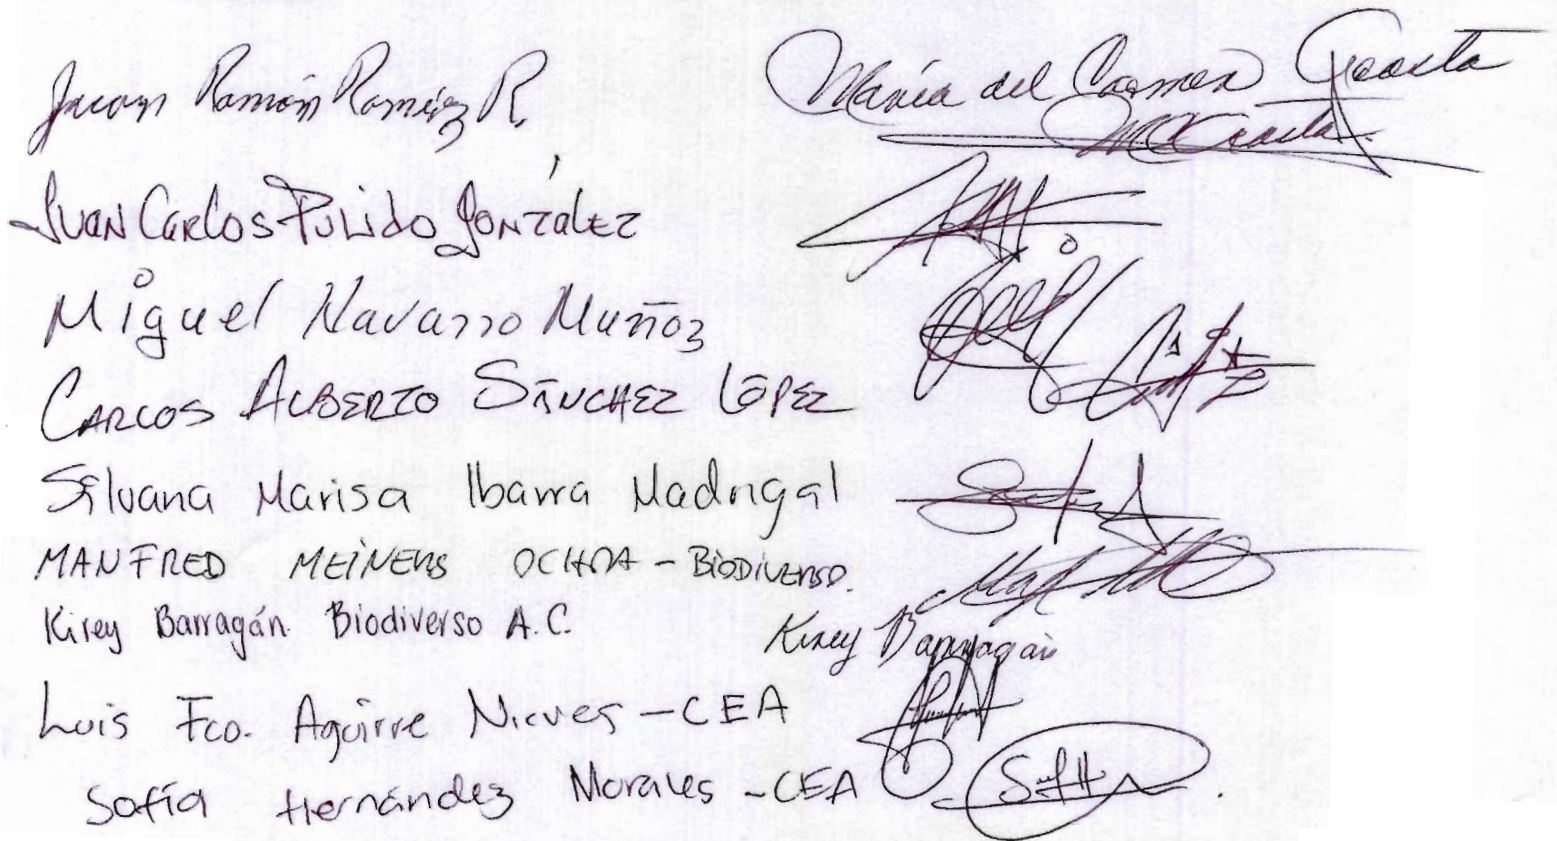 Ramón Ramírez R.
María del Carmen Acosta
JUAN CARLOS PULIDO GONZÁLEZ
Miguel Navarro Muñoz
CARLOS ALBERTO SÁNCHEZ LÓPEZ
Silvana Marisa Ibarra Madrigal
MANFRED MEINERS OCHOA - BIODIVERSO.
Kirey Barragán. Biodiverso A.C.
Kirey Barragán
Luis Fco. Aguirre Nieves - CEA
Sofía Hernández Morales - CEA